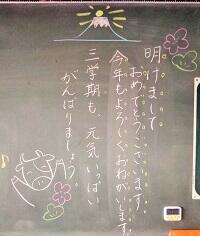 明けまして
おめでとうございます。
今年もよろしくおねがいします。
三学期も 元気いっぱい
がんばりましょう。